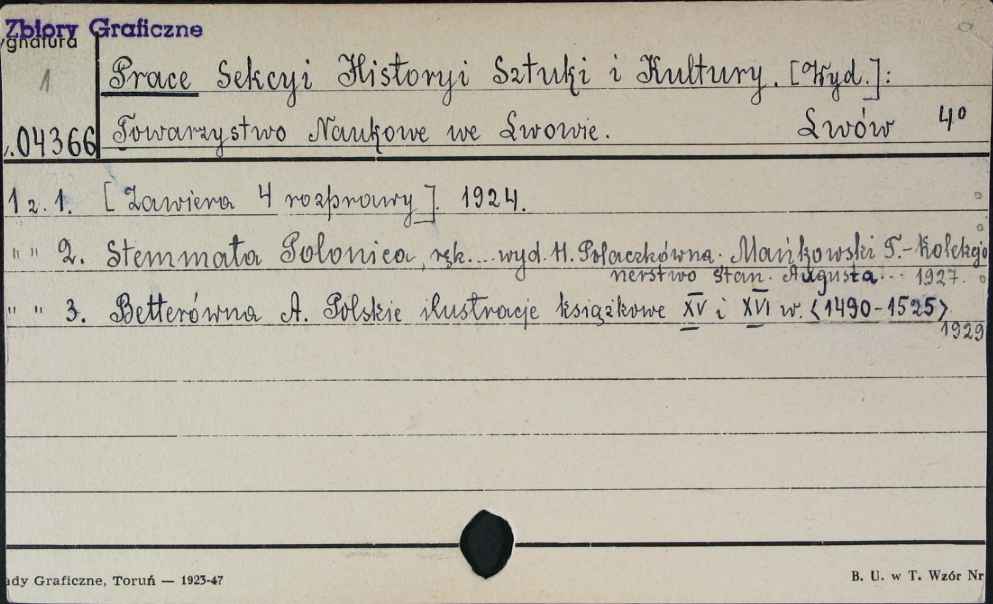 Zbiory Graficzne
ygnatura
1
Prace Sekcyi Historyi Sztuki i Kultury. [Wyd.]:
.04366 Towarzystwo Naukowe we Lwowie. Lwów 4°
1 z. 1. [Zawiera 4 rozprawy]. 1924.
" " 2. Stemmata Polonica, ręk.... wyd. H. Polaczkówna. Mańkowski T.-Kolekcjo
nerstwo Stan. Augusta... 1927.
" " 3. Betterówna A. Polskie ilustracje książkowe XV i XVI w. <1490-1525>
1929
ady Graficzne, Toruń — 1923-47
B. U. w T. Wzór Nr